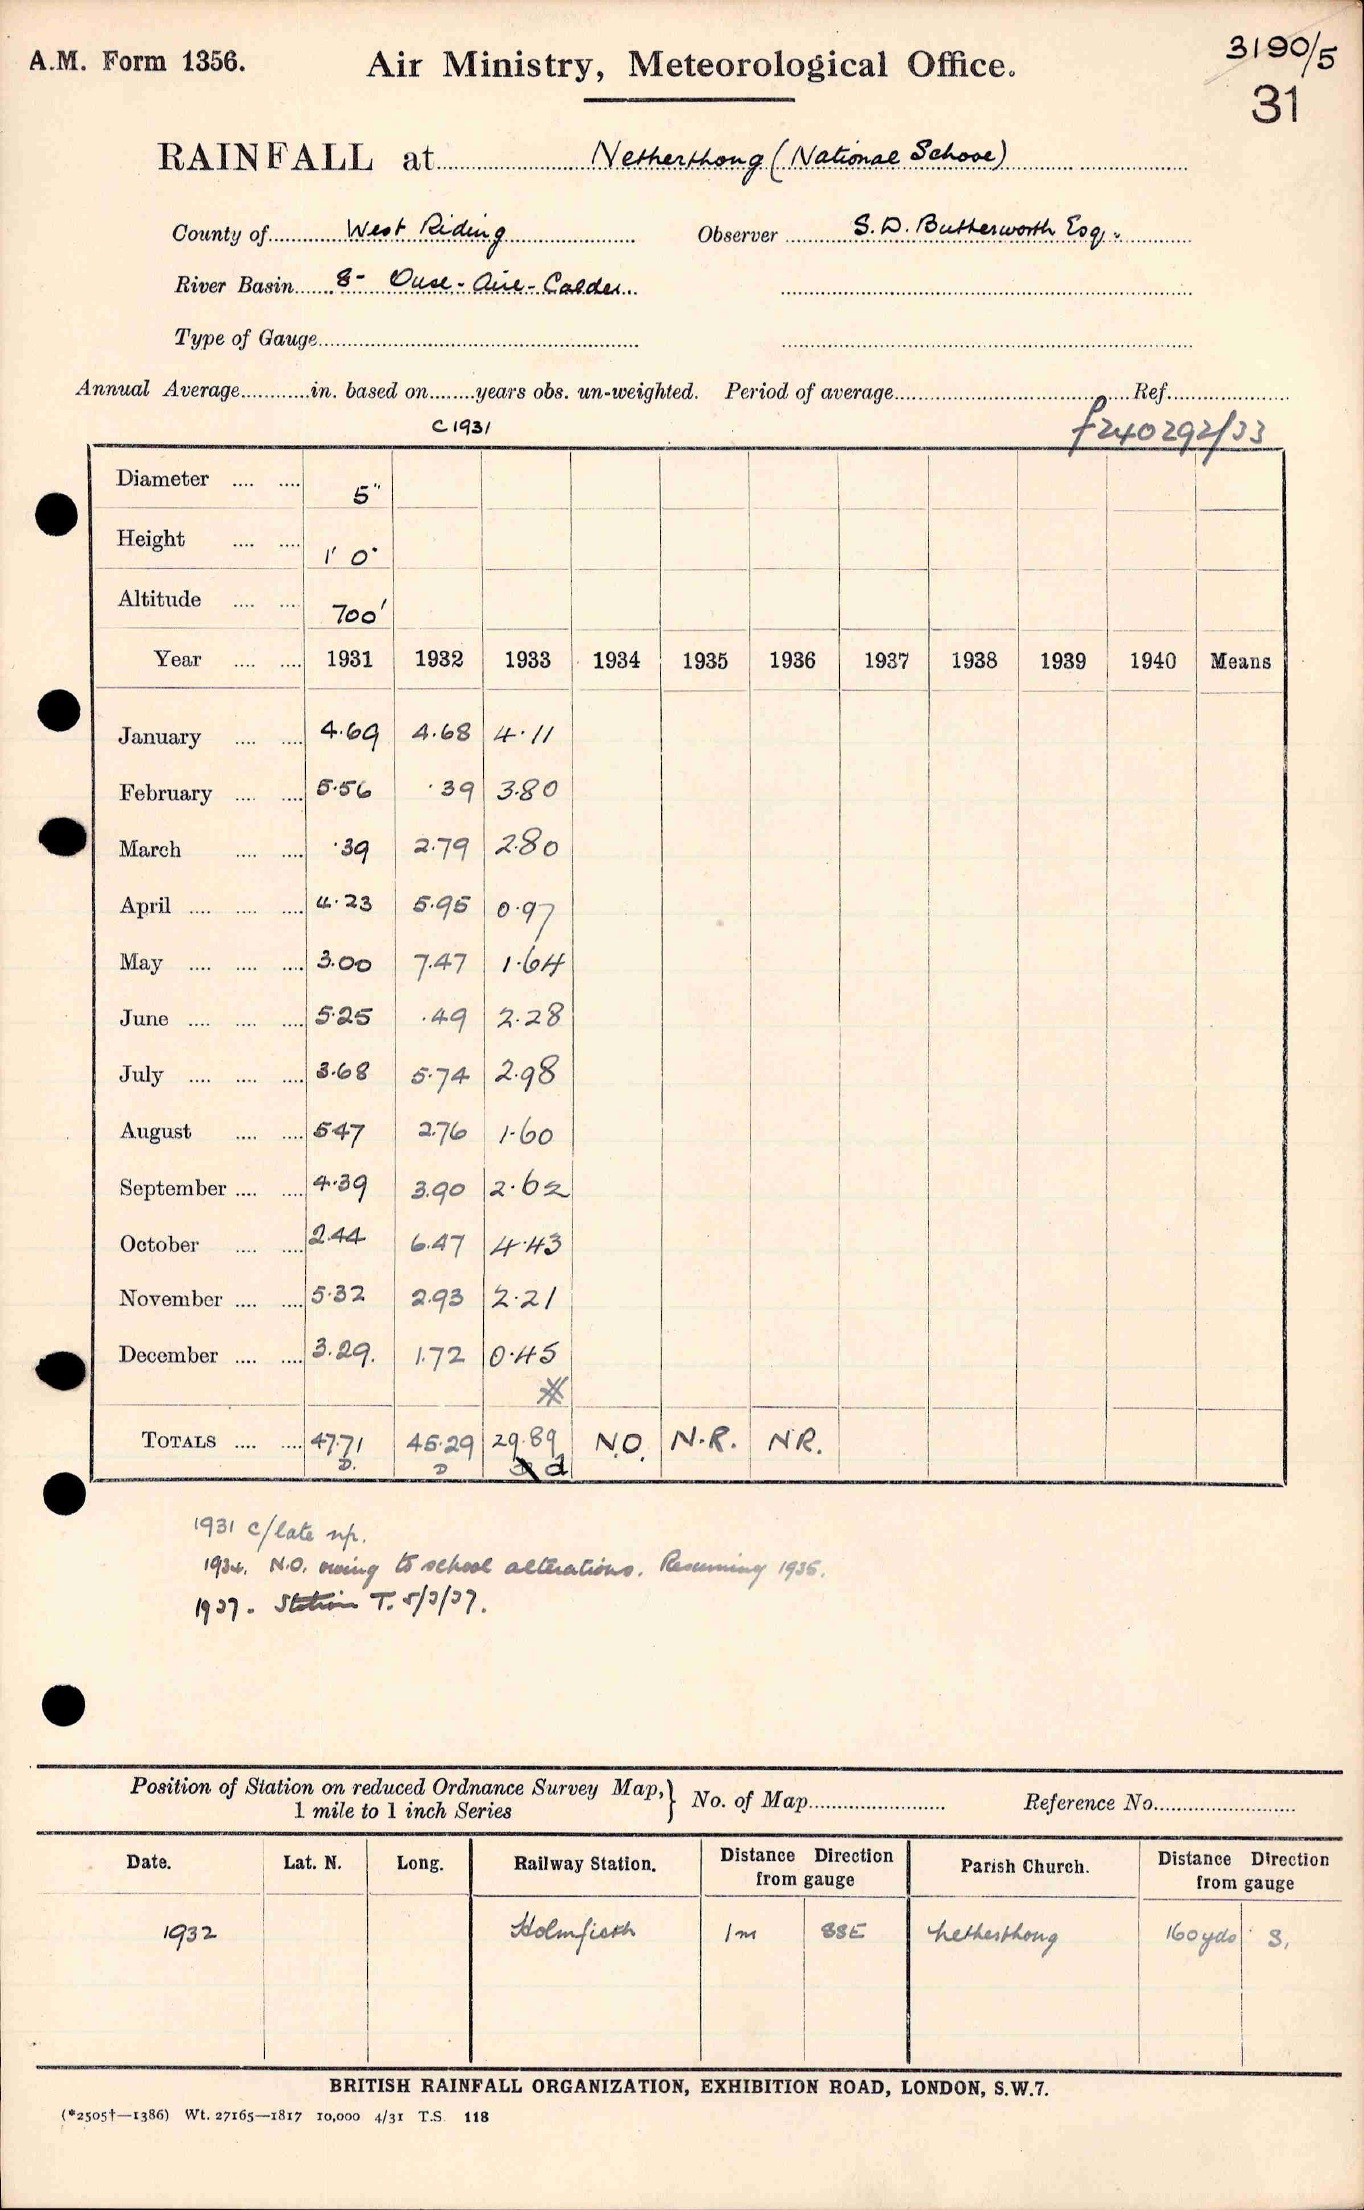 A.M. Form 1356. Air Ministry, Meteorological Office. 3190/5
31
RAINFALL at Netherthong (National School)
County of West Riding Observer S. D. Butterworth Esq.
River Basin 8- Ouse - Aire - Calder
Type of Gauge
Annual Average in. based on years obs. un-weighted. Period of average Ref.
C 1931 f240292/33
Diameter 5"
Height 1' 0"
Altitude 700'
Year 1931 1932 1933 1934 1935 1936 1937 1938 1939 1940 Means
January 4.69 4.68 4.11
February 5.56 .39 3.80
March .39 2.79 2.80
April 4.23 5.95 0.97
May 3.00 7.47 1.64
June 5.25 .49 2.28
July 3.68 5.74 2.98
August 5.47 2.76 1.60
September 4.39 3.90 2.62
October 2.44 6.47 4.43
November 5.32 2.93 2.21
December 3.29. 1.72 0.45
TOTALS 47.71 45.29 29.89 N.O. N.R. N.R.
D. D d
1931 c/late np.
1934. N.O. owing to school alterations. Resuming 1935.
1937. Station T. 5/3/37.
Position of Station on reduced Ordnance Survey Map, 1 mile to 1 inch Series No. of Map Reference No.
Date. Lat. N. Long. Railway Station. Distance Direction from gauge Parish Church. Distance Direction from gauge
1932 Holmfirth 1m SSE Netherthong 160yds S.
BRITISH RAINFALL ORGANIZATION, EXHIBITION ROAD, LONDON, S.W.7.
(*2505†—1386) Wt. 27165—1817 10,000 4/31 T.S. 118